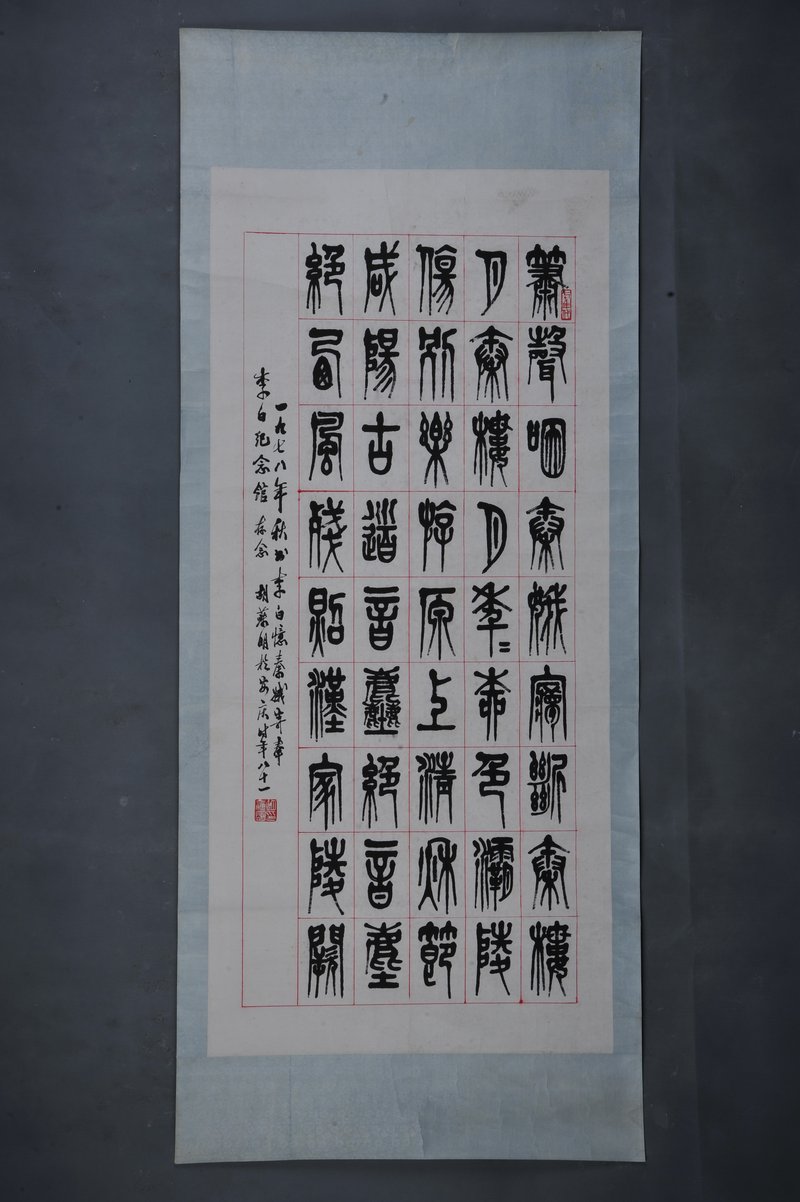 簫聲咽秦娥夢斷秦樓
月秦樓月年〻柳色灞陵
傷別樂游原上清秋節
咸陽古道音塵絕音塵
絕西風殘照漢家陵闕
一九七八年秋书李白憶秦娥寄奉
李白纪念馆 存念 胡 於安庆时年八十一